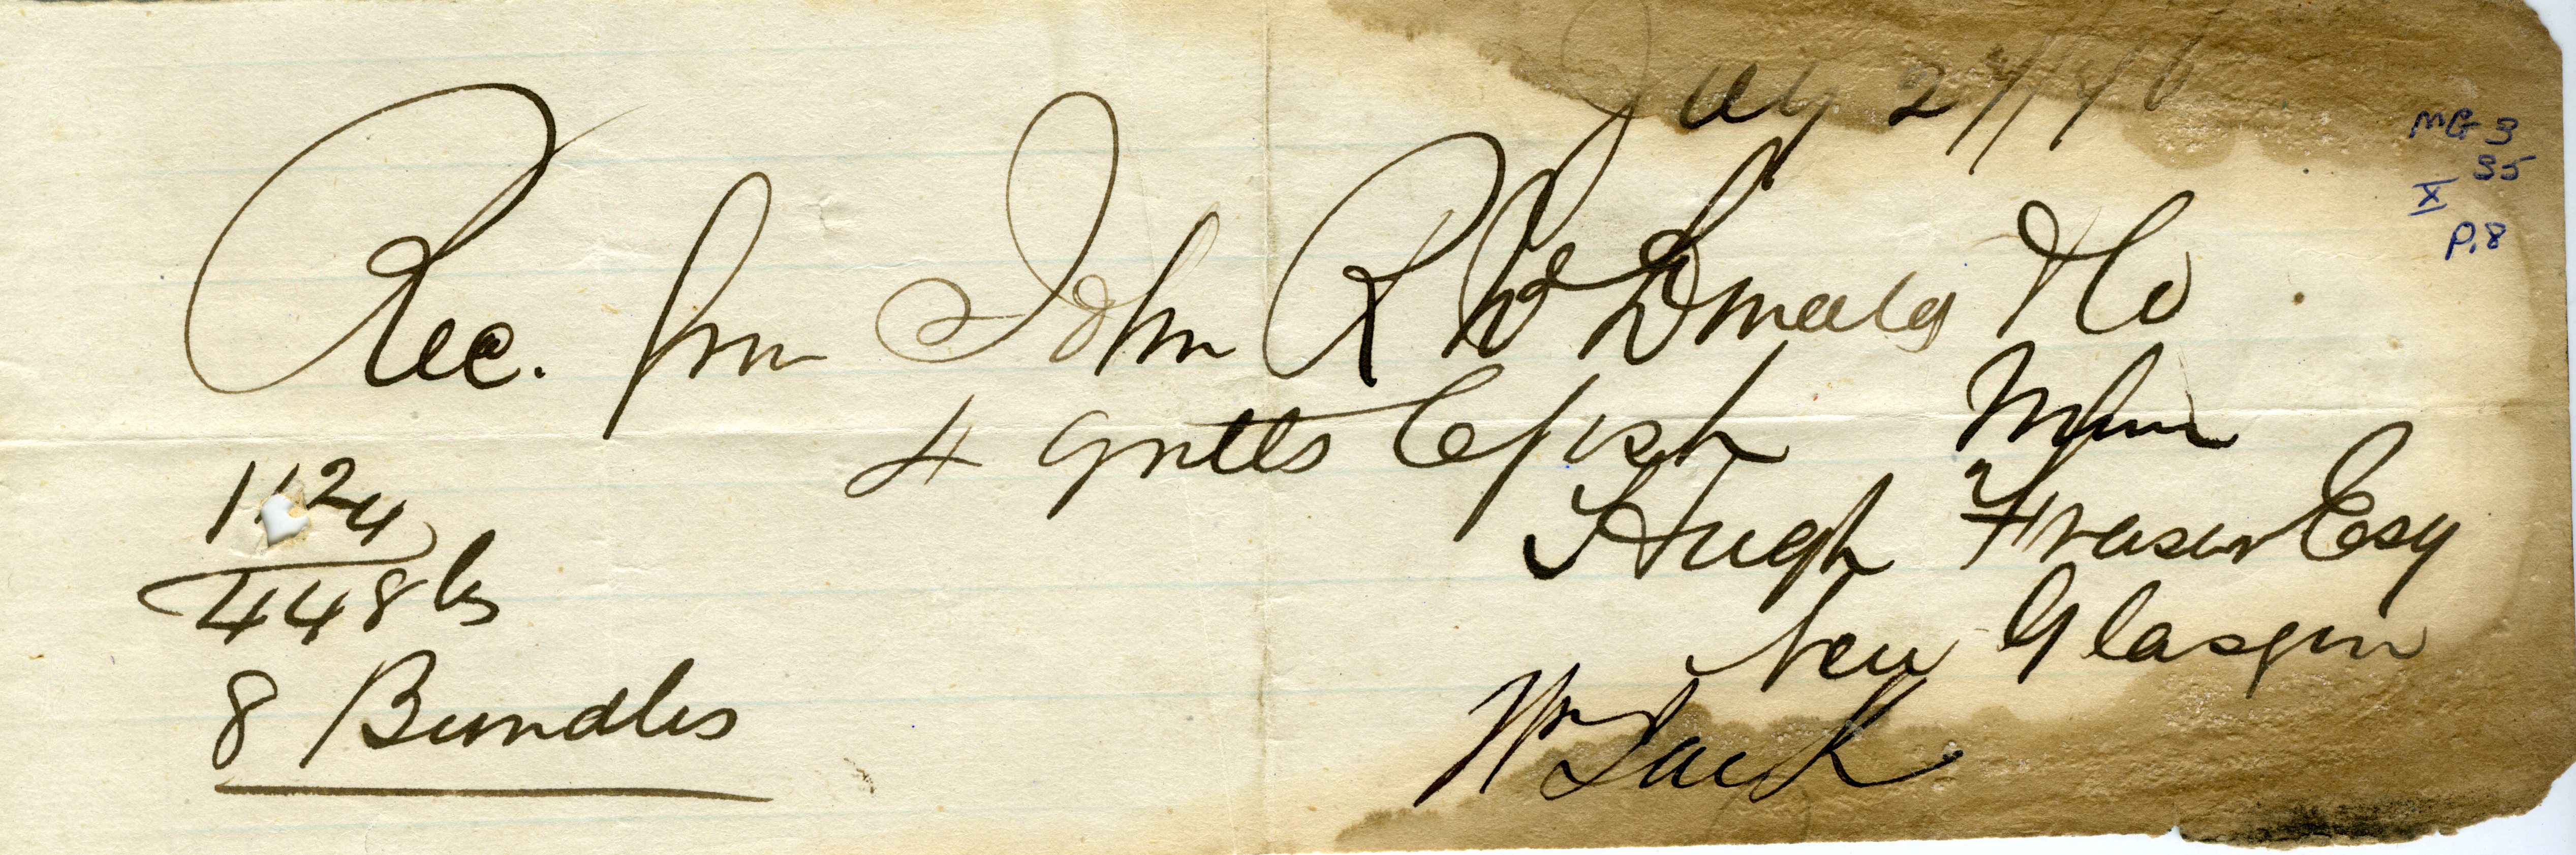 July 27/96
MG 3
35
X
P.8
Rec. from John R McDonald
4 Qntls C fish
Hugh Fraser Esq
New Glasgow
112
4
448 lbs
8 Bundles
Wm Jack